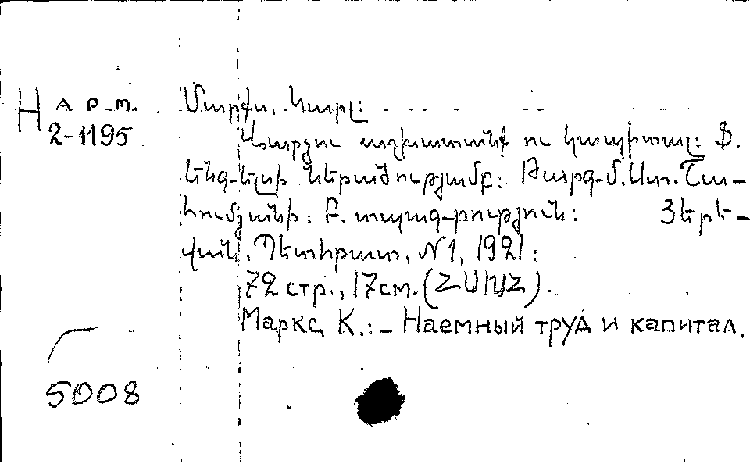 Н а р. т.
2-1195
Մարքս, Կարլ:
Վարձու աշխատանք ու կապիտալ: Ֆ.
Ենգ-ելսի ներածությամբ: Թարգ-մ. Առ. Շա-
հումյանի: Բ. տպագ-րություն: Յերե-
վան, Պետհրատ, N1, 1921:
72 стр., 17см. (ՀՍԽՀ).
Маркс К.: – Наемный труд и капитал.
5008